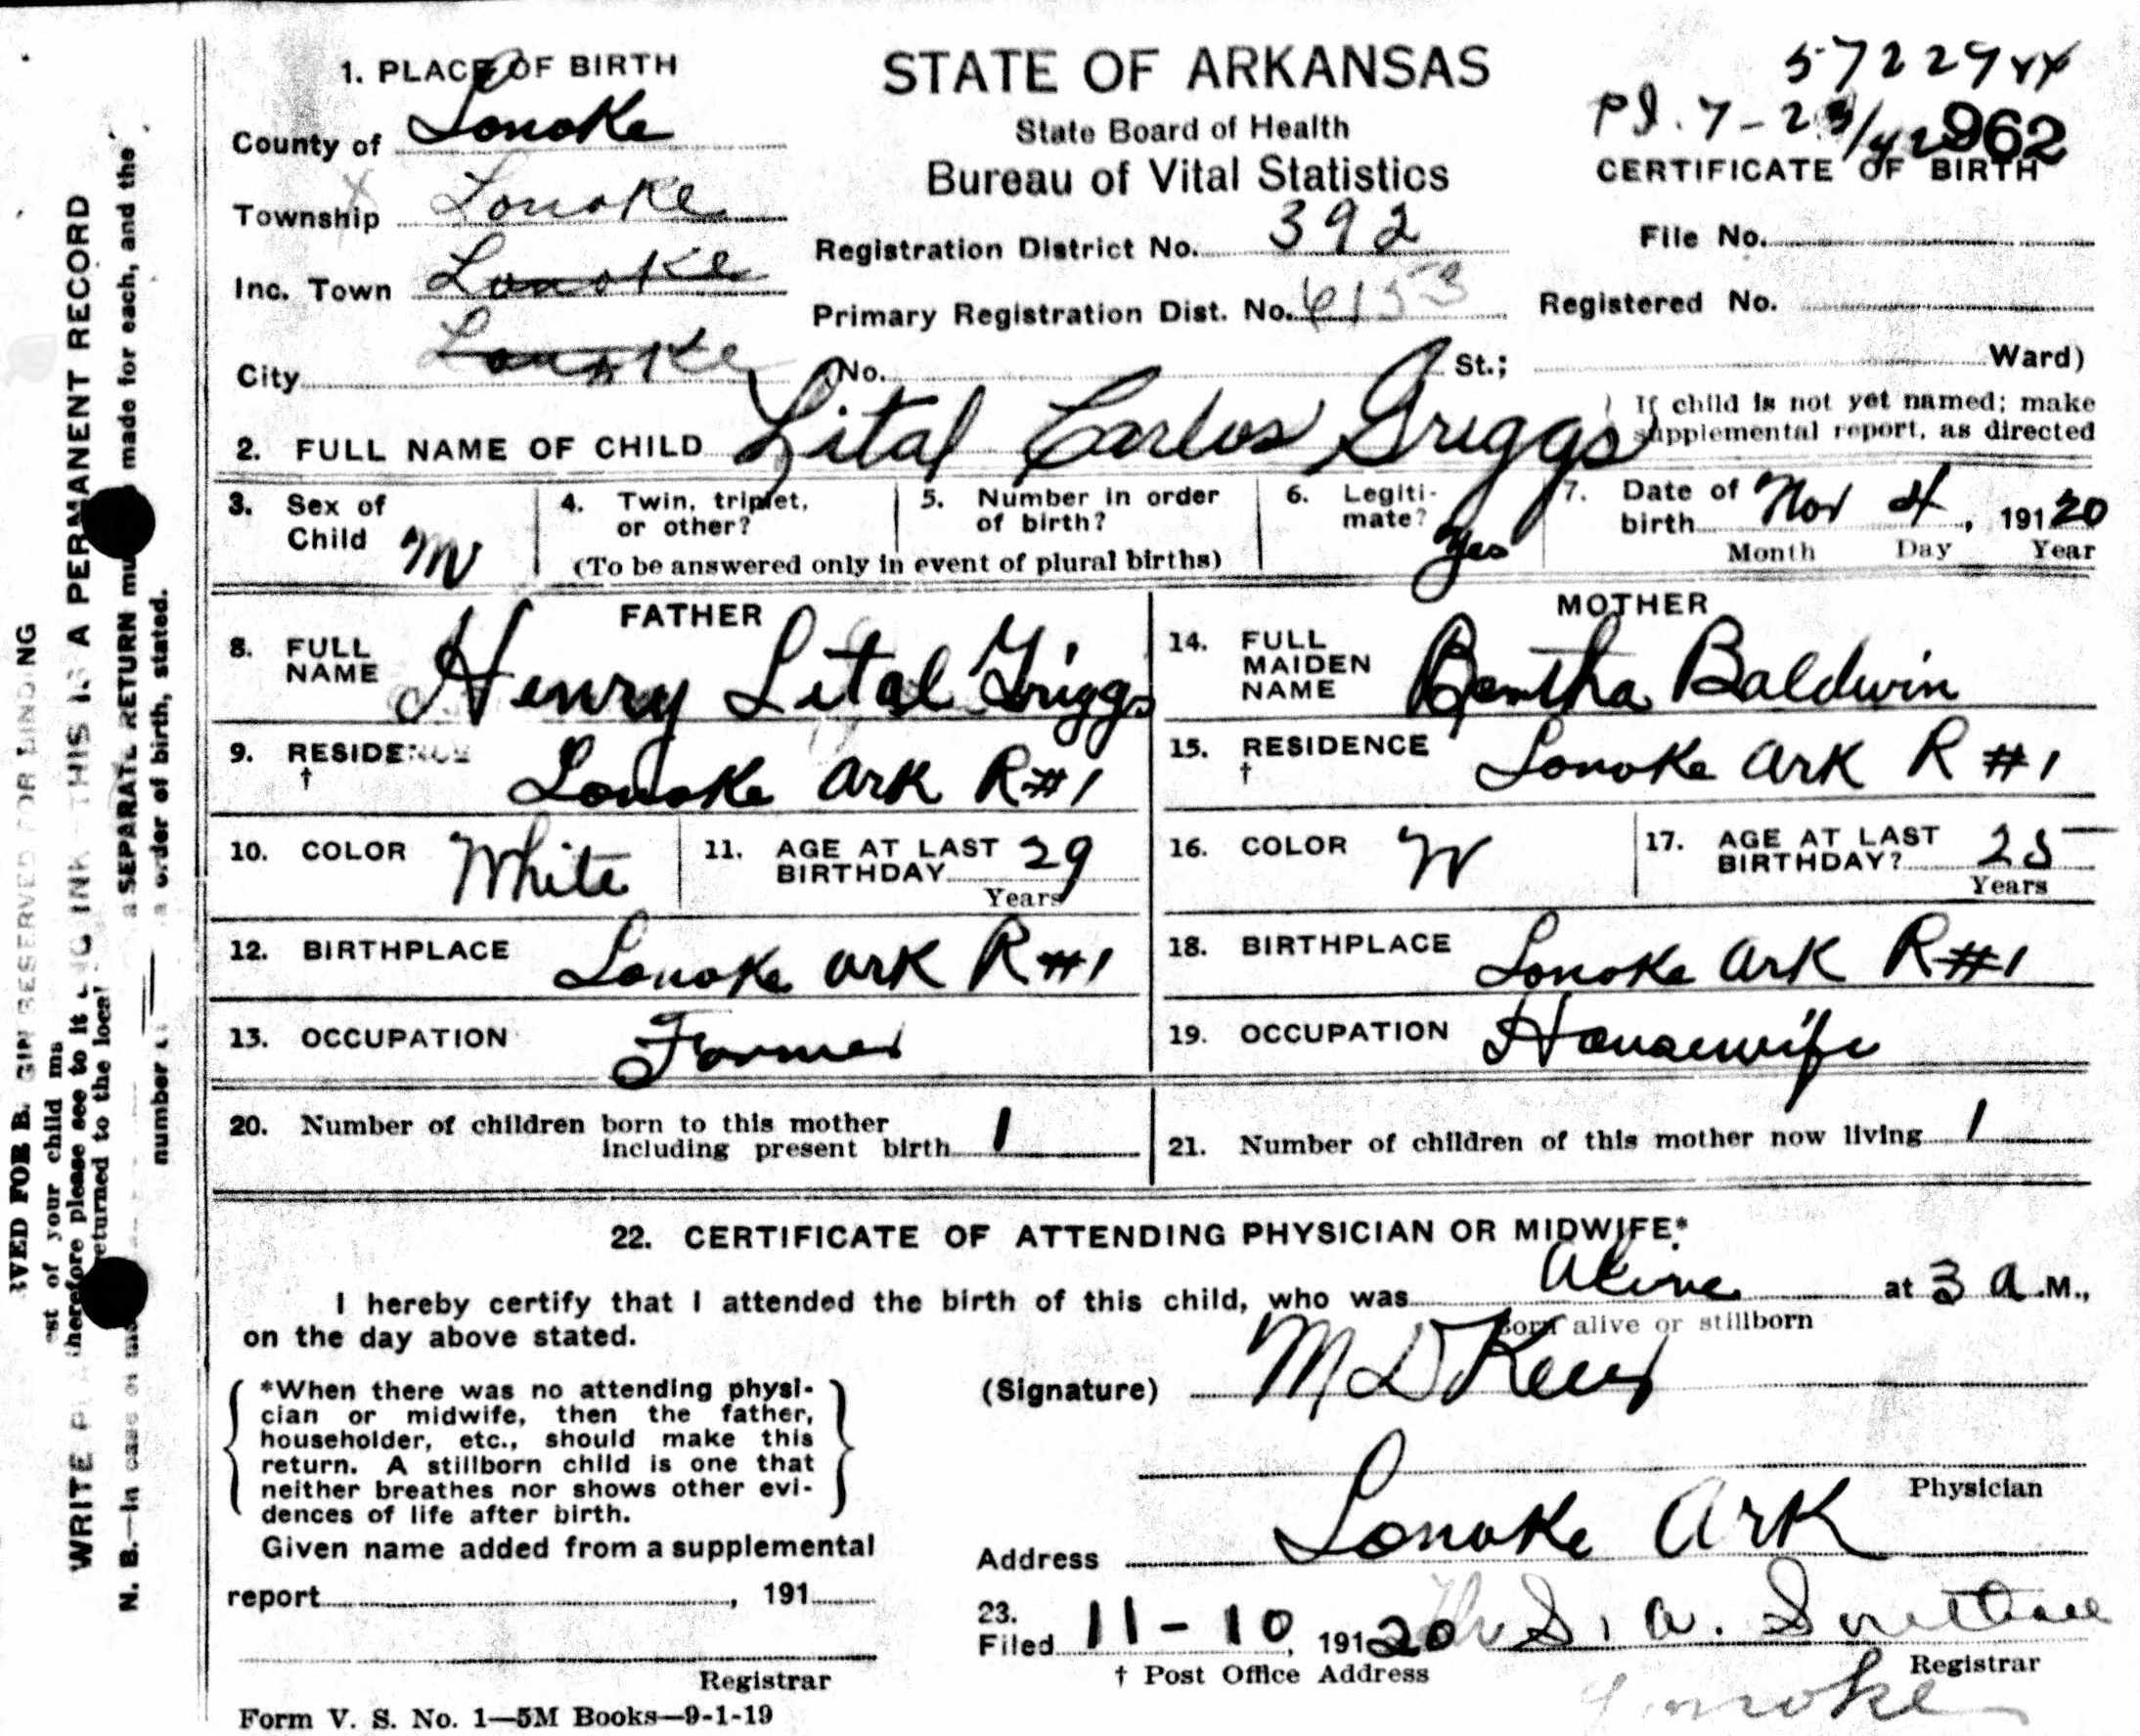 1. PLACE OF BIRTH
County of Lonoke
Township Lonoke
Inc. Town Lonoke
City Lonoke
STATE OF ARKANSAS
State Board of Health
Bureau of Vital Statistics
Registration District No. 392
Primary Registration Dist. No. 6153
No. St.; Ward)
57229
Pd. 7-23/42 962
CERTIFICATE OF BIRTH
File No.
Registered No.
2. FULL NAME OF CHILD Lital Carlos Griggs
If child is not yet named; make
supplemental report, as directed
3. Sex of Child M
4. Twin, triplet, or other?
5. Number in order of birth?
(To be answered only in event of plural births)
6. Legitimate? Yes
7. Date of birth Nov 4, 19120
Month Day Year
FATHER
8. FULL NAME Henry Lital Griggs
9. RESIDENCE † Lonoke Ark R#1
10. COLOR White
11. AGE AT LAST BIRTHDAY 29 Years
12. BIRTHPLACE Lonoke Ark R#1
13. OCCUPATION Farmer
MOTHER
14. FULL MAIDEN NAME Bertha Baldwin
15. RESIDENCE † Lonoke Ark R #1
16. COLOR W
17. AGE AT LAST BIRTHDAY? 25 Years
18. BIRTHPLACE Lonoke Ark R#1
19. OCCUPATION Housewife
20. Number of children born to this mother
including present birth 1
21. Number of children of this mother now living 1
22. CERTIFICATE OF ATTENDING PHYSICIAN OR MIDWIFE*
I hereby certify that I attended the birth of this child, who was alive at 3 a.M.,
Born alive or stillborn
on the day above stated.
*When there was no attending physi-
cian or midwife, then the father,
householder, etc., should make this
return. A stillborn child is one that
neither breathes nor shows other evi-
dences of life after birth.
Given name added from a supplemental
report , 191
Registrar
Form V. S. No. 1—5M Books—9-1-19
(Signature) M D
Physician
Address Lonoke Ark
23.
Filed 11-10, 19120 S. A.
† Post Office Address
Registrar
Lonoke
WRITE THIS IS A PERMANENT RECORD
N. B.—In case of a SEPARATE RETURN made for each, and the
number order of birth, stated.
of your child
therefore please see to it
returned to the local
RESERVED FOR BINDING